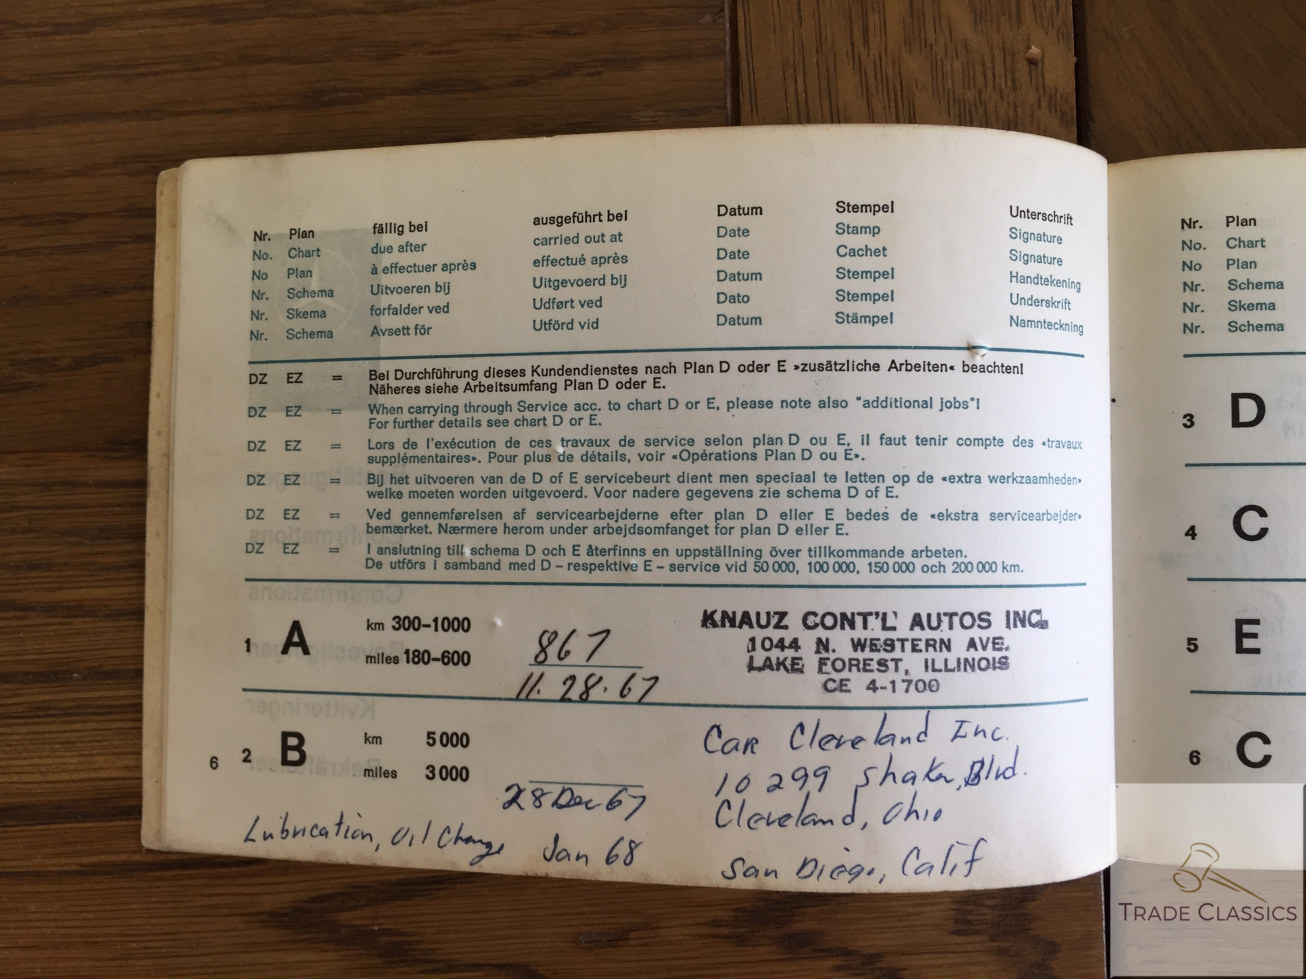 Nr. Plan fällig bei ausgeführt bei Datum Stempel Unterschrift
No. Chart due after carried out at Date Stamp Signature
No Plan à effectuer après effectué après Date Cachet Signature
Nr. Schema Uitvoeren bij Uitgevoerd bij Datum Stempel Handtekening
Nr. Skema forfalder ved Udført ved Dato Stempel Underskrift
Nr. Schema Avsett för Utförd vid Datum Stämpel Namnteckning
DZ EZ = Bei Durchführung dieses Kundendienstes nach Plan D oder E »zusätzliche Arbeiten« beachten!
Näheres siehe Arbeitsumfang Plan D oder E.
DZ EZ = When carrying through Service acc. to chart D or E, please note also "additional jobs"!
For further details see chart D or E.
DZ EZ = Lors de l'exécution de ces travaux de service selon plan D ou E, il faut tenir compte des «travaux
supplémentaires». Pour plus de détails, voir «Opérations Plan D ou E».
DZ EZ = Bij het uitvoeren van de D of E servicebeurt dient men speciaal te letten op de «extra werkzaamheden»
welke moeten worden uitgevoerd. Voor nadere gegevens zie schema D of E.
DZ EZ = Ved gennemførelsen af servicearbejderne efter plan D eller E bedes de «ekstra servicearbejder»
bemærket. Nærmere herom under arbejdsomfanget for plan D eller E.
DZ EZ = I anslutning till schema D och E återfinns en uppställning över tillkommande arbeten.
De utförs i samband med D – respektive E – service vid 50 000, 100 000, 150 000 och 200 000 km.
1 A km 300–1000
miles 180–600
867
11.28.67
KNAUZ CONT'L' AUTOS INC.
1044 N. WESTERN AVE.
LAKE FOREST, ILLINOIS
CE 4-1700
6 2 B km 5 000
miles 3 000
28 Dec 67
Car Cleveland Inc.
10299 Shaker, Blvd.
Cleveland, Ohio
Lubrication, Oil Change Jan 68
San Diego, Calif
Nr. Plan
No. Chart
No Plan
Nr. Schema
Nr. Skema
Nr. Schema
3 D
4 C
5 E
6 C
TRADE CLASSICS